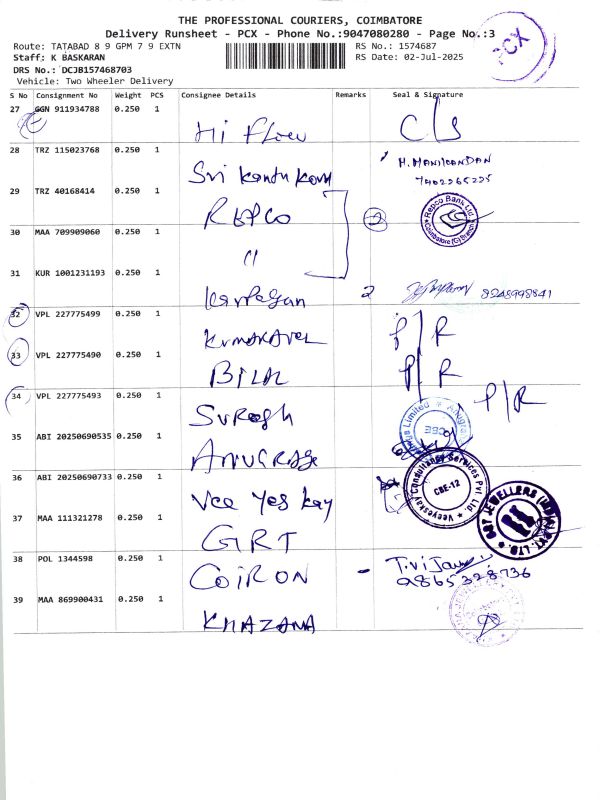 THE PROFESSIONAL COURIERS, COIMBATORE
Delivery Runsheet - PCX - Phone No.:9047080280 - Page No.:3
Route: TATABAD 8 9 GPM 7 9 EXTN
RS No.: 1574687
PCX
Staff: K BASKARAN
RS Date: 02-Jul-2025
DRS No.: DCJB157468703
Vehicle: Two Wheeler Delivery
S No Consignment No Weight PCS Consignee Details Remarks Seal & Signature
27 GGN 911934788 0.250 1
Hi Flow C/S
28 TRZ 115023768 0.250 1
Sri H. MANIKANDAN
29 TRZ 40168414 0.250 1
REPCO 2 Repco Bank Ltd
30 MAA 709909060 0.250 1
"
31 KUR 1001231193 0.250 1
2 8248998841
32 VPL 227775499 0.250 1
P/R
33 VPL 227775490 0.250 1
BILAL P/R
34 VPL 227775493 0.250 1
SURESH P/R
35 ABI 20250690535 0.250 1
CBE
36 ABI 20250690733 0.250 1
Vee Yes Kay Veeyeskay Consultancy Services Pvt. Ltd. CBE-12
37 MAA 111321278 0.250 1
GRT GRT JEWELLERS (INDIA) PVT. LTD.
38 POL 1344598 0.250 1
COIRON - 9865328736
39 MAA 869900431 0.250 1
KHAZANA